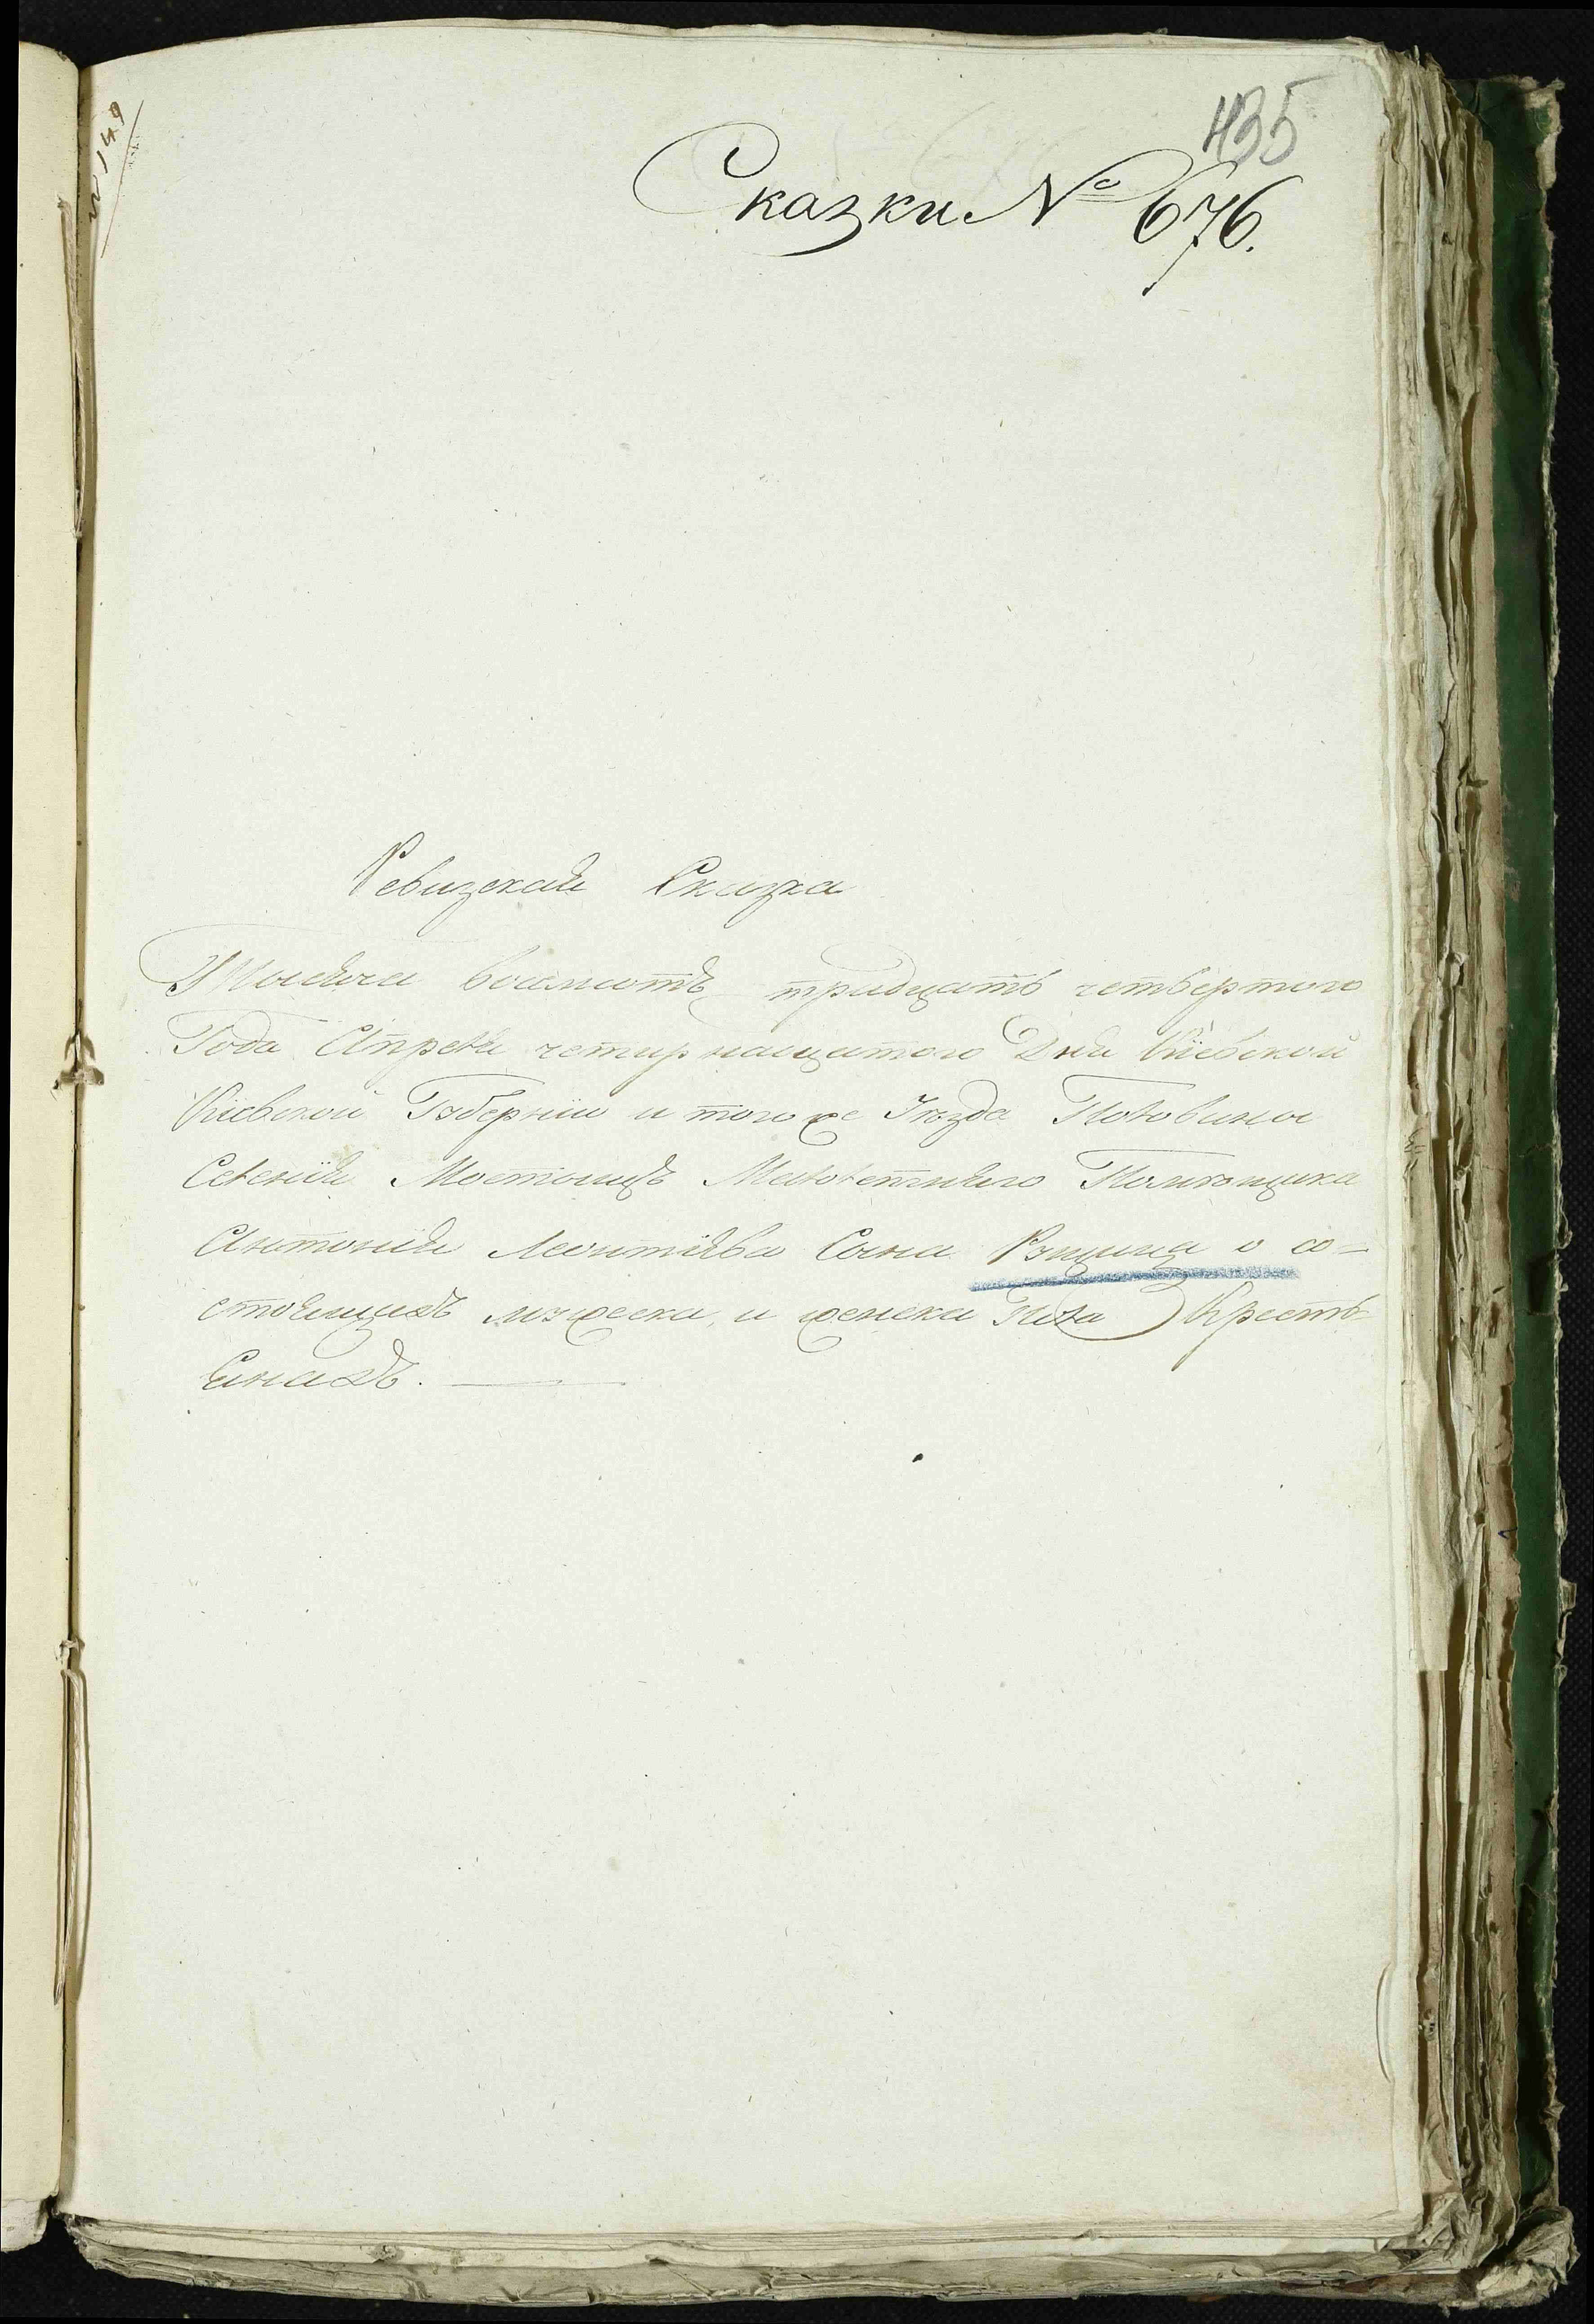 435
Сказки № 676.
№ 149
Ревизская Сказка
Тысяча восемсотъ тридцать четвертого
Года Апреля четырнацатого Дня Кіевской
Кіевской Губерніи и того же Уезда Половины
Селенія Мостищъ Малолетняго Помещика
Антонія Леонтіева Сына Рущица о со-
стоящихъ мужеска, и женска Пола Крестъ-
янахъ.